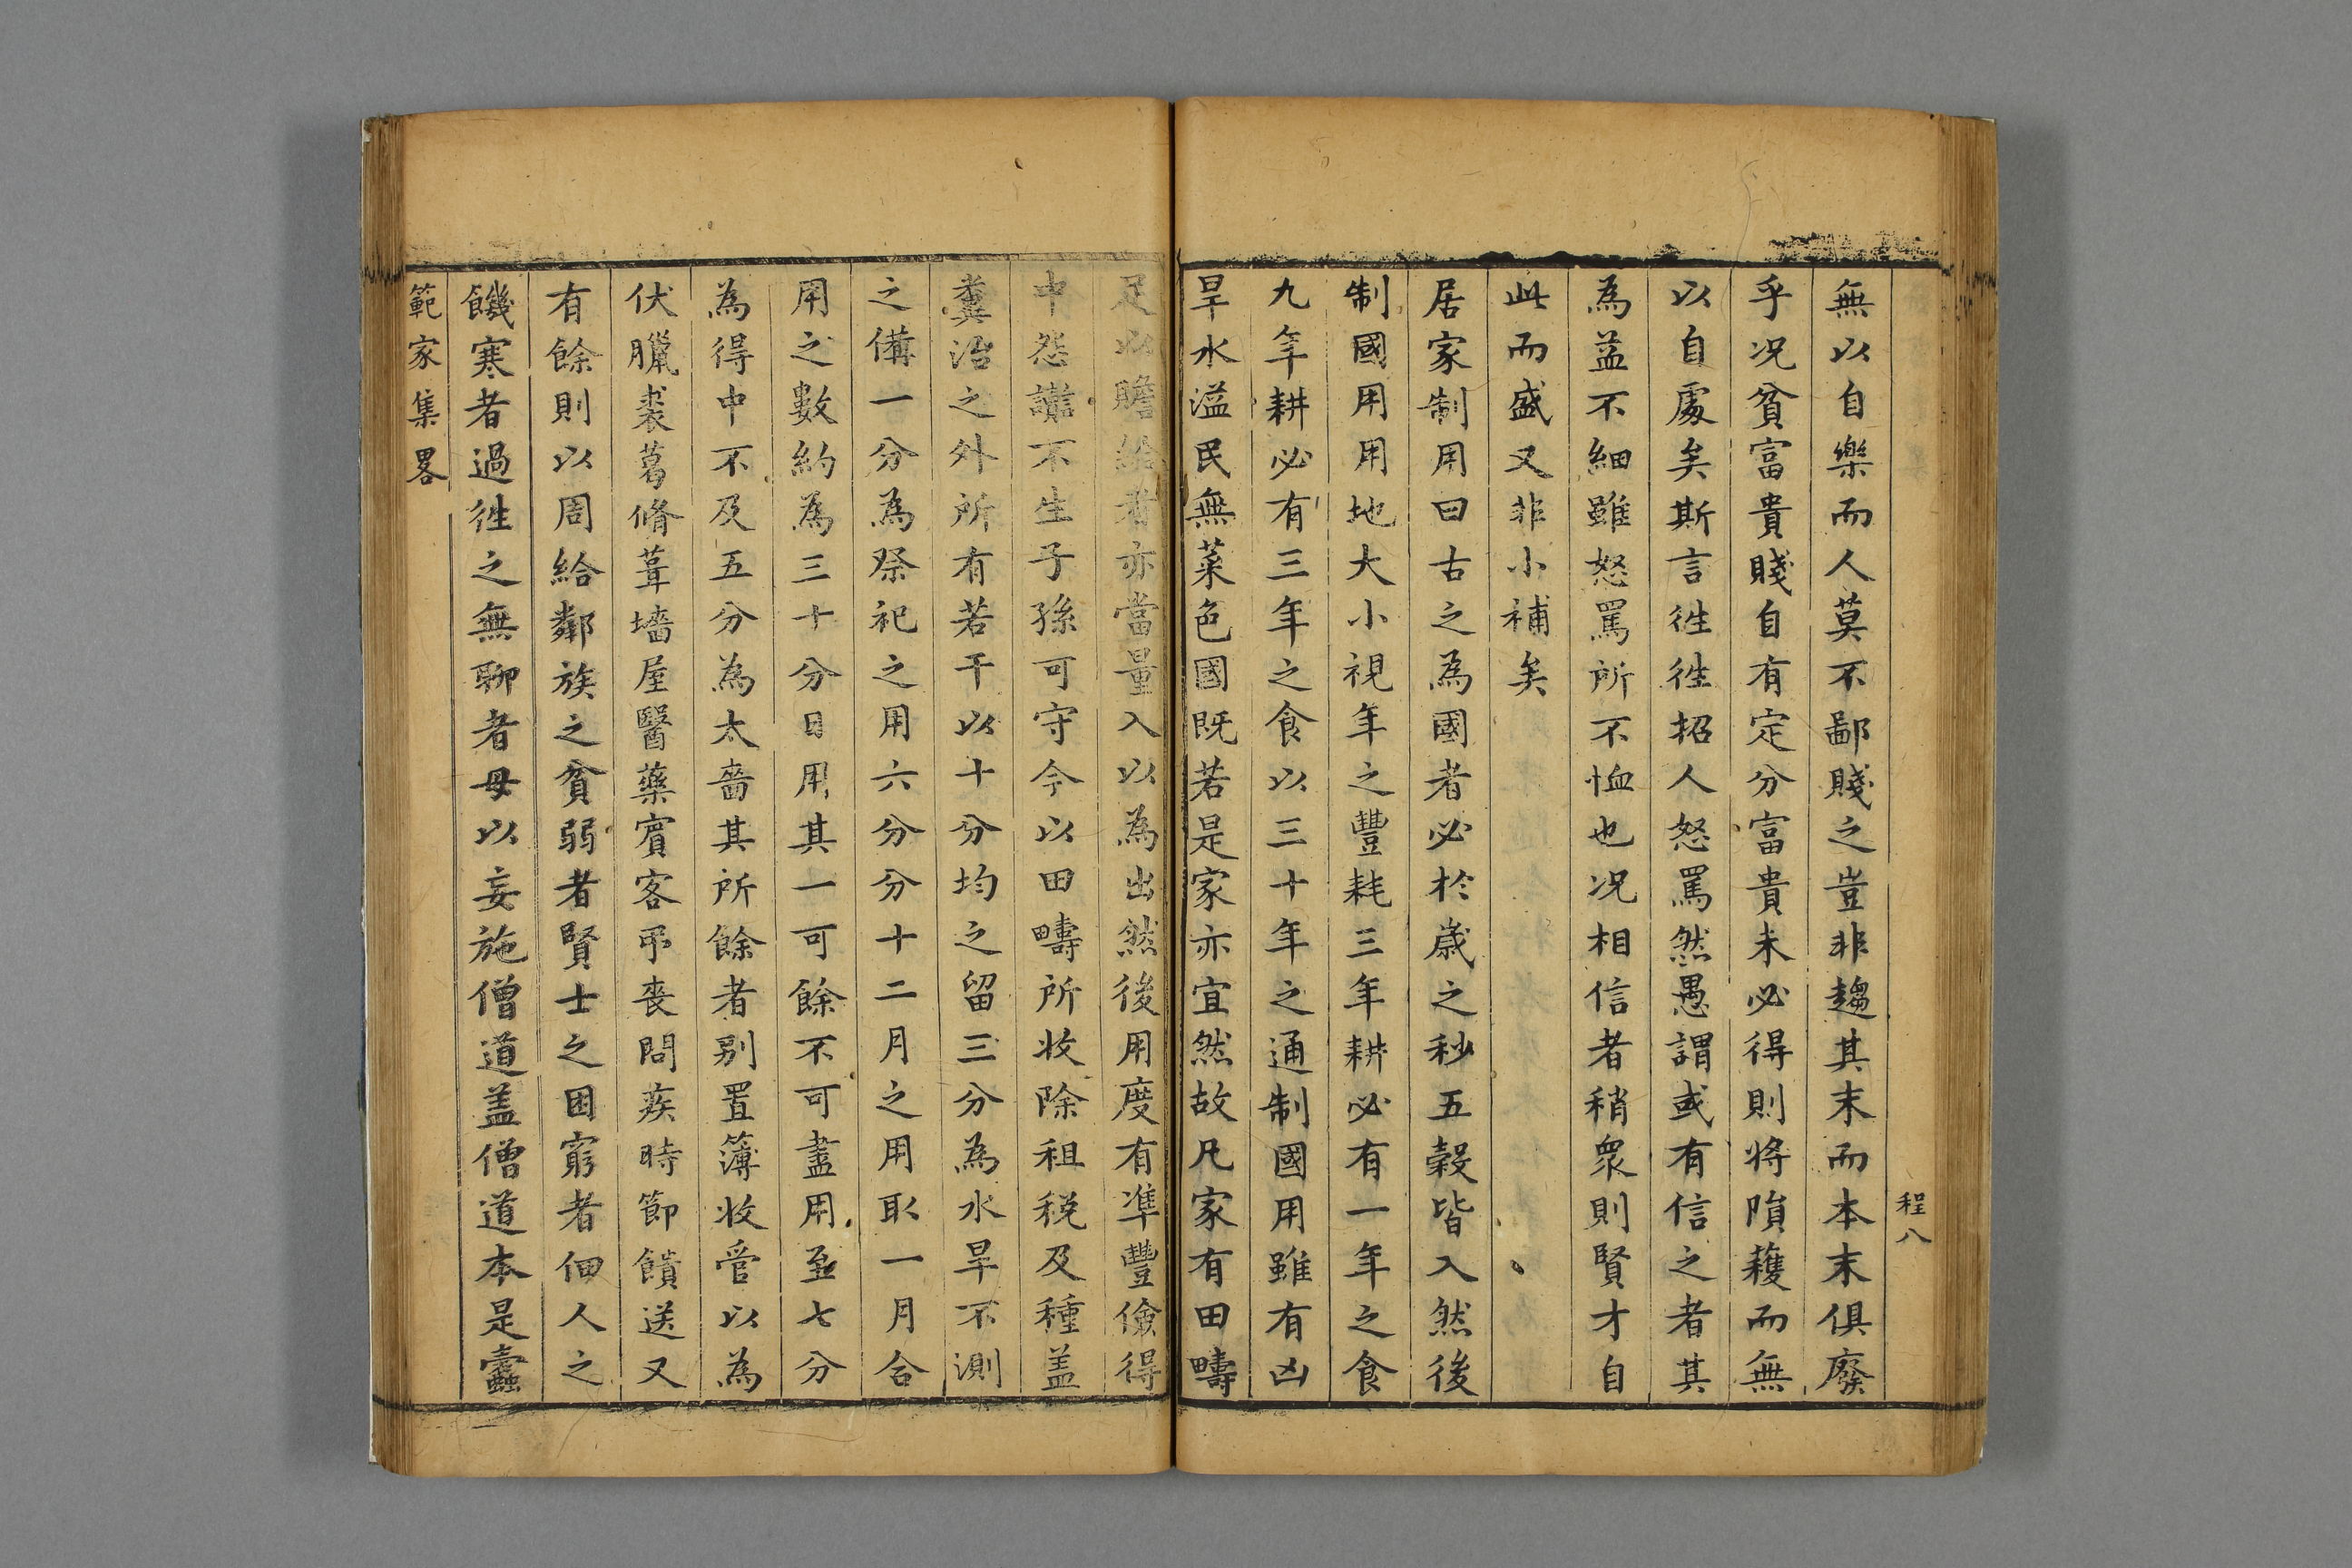 程八
無以自樂而人莫不鄙賤之豈非趨其末而本末俱廢
乎况貧富貴賤自有定分富貴未必得則將隕穫而無
以自處矣斯言徃徃招人怒罵然愚謂或有信之者其
為益不細雖怒罵所不恤也况相信者稍衆則賢才自
此而盛又非小補矣
居家制用曰古之為國者必於歳之秒五穀皆入然後
制國用用地大小視年之豐耗三年耕必有一年之食
九年耕必有三年之食以三十年之通制國用雖有凶
旱水溢民無菜色國既若是家亦宜然故凡家有田疇
足以贍給者亦當量入以為出然後用度有準豐儉得
中怨讟不生子孫可守今以田疇所收除租税及種盖
糞治之外所有若干以十分均之留三分為水旱不測
之備一分為祭祀之用六分分十二月之用取一月合
用之數約為三十分日用其一可餘不可盡用至七分
為得中不及五分為太嗇其所餘者别置簿收管以為
伏臘裘葛脩葺墻屋醫藥賓客弔喪問疾時節饋送又
有餘則以周給鄰族之貧弱者賢士之困窮者佃人之
饑寒者過徃之無聊者毋以妄施僧道盖僧道本是蠹
範家集畧